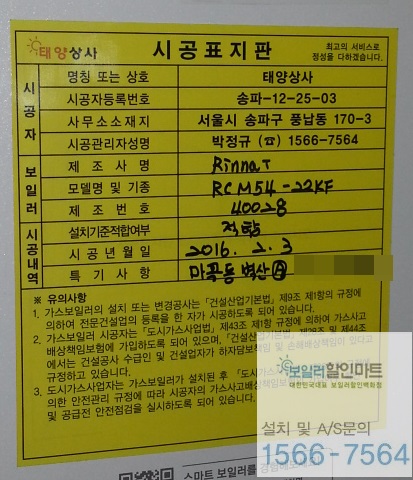 태양상사 시공표지판 최고의 서비스로
정성을 다하겠습니다.
시공자
명칭 또는 상호 태양상사
시공자등록번호 송파-12-25-03
사무소소재지 서울시 송파구 풍납동 170-3
시공관리자성명 박정규 (☎) 1566-7564
보일러
제조사명 Rinnai
모델명 및 기종 RCM54-22KF
제조번호 40028
시공내역
설치기준적합여부 적합
시공년월일 2016. 2. 3
특기사항 마곡동 벽산Ⓐ
※ 유의사항
1. 가스보일러의 설치 또는 변경공사는 「건설산업기본법」 제9조 제1항의 규정에
의하여 전문건설업의 등록을 한 자가 시공하도록 되어 있습니다.
2. 가스보일러 시공자는 「도시가스사업법」 제43조 제1항 규정에 의하여 가스사고
배상책임보험에 가입하도록 되어 있으며, 「건설산업기본법」 제28조 및 제44조
에서는 건설공사 수급인 및 건설업자가 하자담보책임 및 손해배상책임이 있다고
규정하고 있습니다.
3. 도시가스사업자는 가스보일러가 설치된 후 「도시가스
의한 안전관리 규정에 따라 시공자의 가스사고배상
및 공급전 안전점검을 실시하도록 되어 있습니다.
보일러할인마트
대한민국대표 보일러할인백화점
설치 및 A/S문의
1566-7564
스마트 보일러를